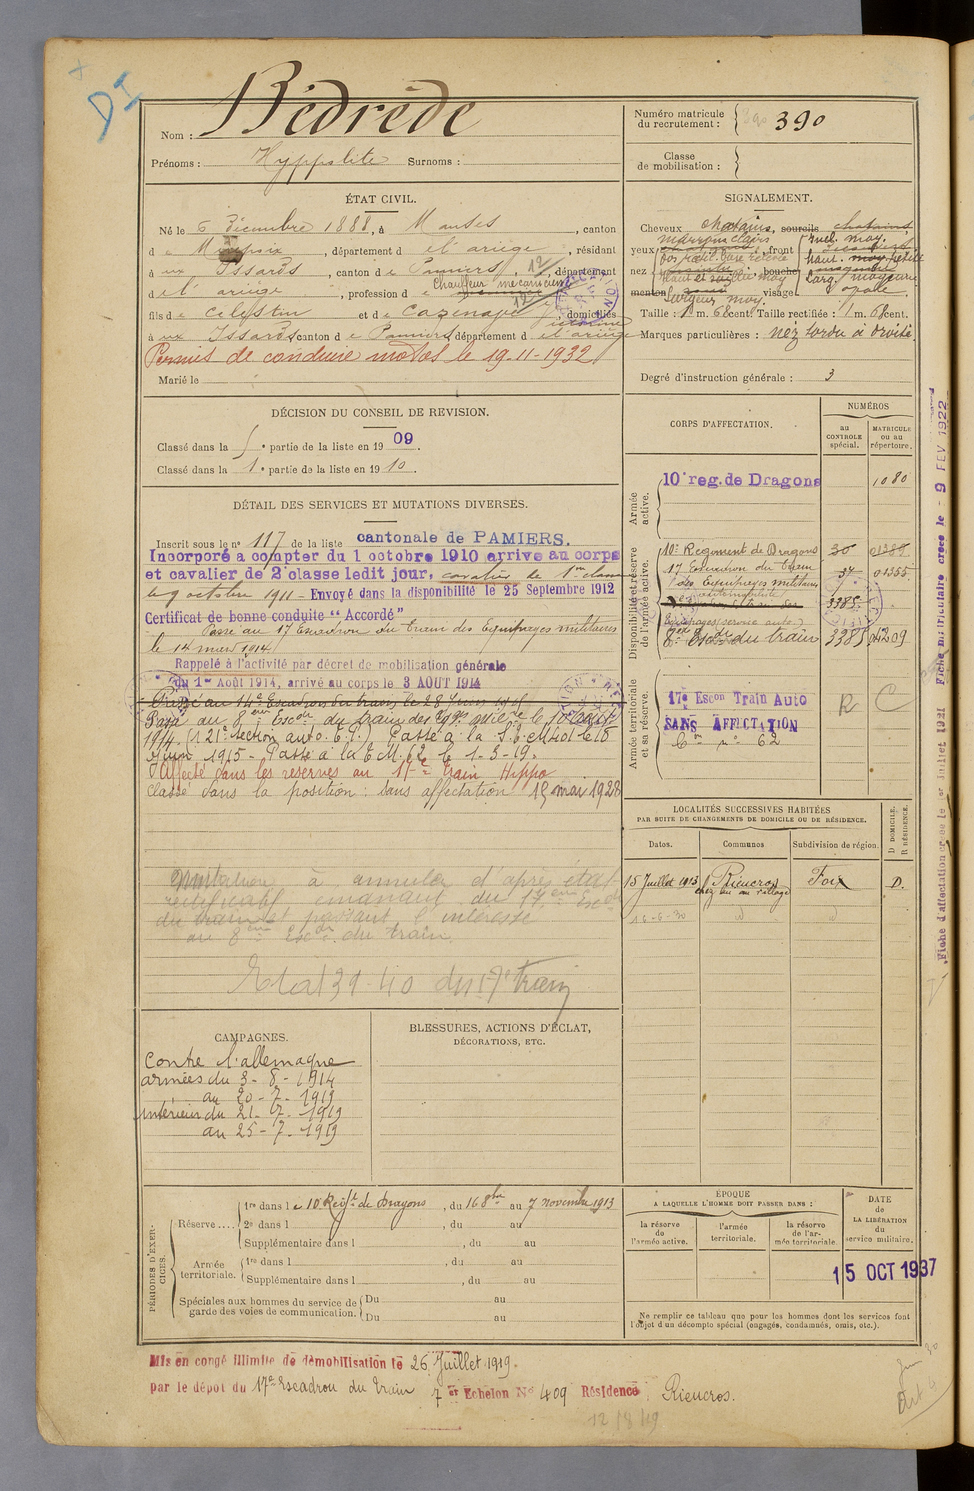 DI
Nom : Bédrède
Prénoms : Hyppolite Surnoms :
Numéro matricule du recrutement : 390
Classe de mobilisation :
ÉTAT CIVIL.
Né le 6 Décembre 1888, à Manses, canton
d Mirepoix, département d e l'ariège, résidant
à ux Issards, canton d e Pamiers, département
d e l'ariège, profession d e Chauffeur mécanicien
fils d e Celestin et d e Cazenave, domiciliés
à ux Issards canton d e Pamiers département d e l'ariège
Permis de conduire autos le 19-11-1932
Marié le
SIGNALEMENT.
Cheveux chatains, sourcils chatains
yeux marrons clairs, front
nez, bouche
menton, visage ovale
Taille : 1 m. 68 cent. Taille rectifiée : 1 m. 68 cent.
Marques particulières : nez tordu à droite
Degré d'instruction générale : 3
DÉCISION DU CONSEIL DE REVISION.
Classé dans la 5e partie de la liste en 1909.
Classé dans la 1e partie de la liste en 1910.
DÉTAIL DES SERVICES ET MUTATIONS DIVERSES.
Inscrit sous le n° 117 de la liste cantonale de PAMIERS.
Incorporé a compter du 1 octobre 1910 arrive au corps
et cavalier de 2e classe ledit jour, cavalier de 1re classe
le 9 octobre 1911 - Envoyé dans la disponibilité le 25 Septembre 1912
Certificat de bonne conduite “ Accordé ”
Passé au 17 Escadron du train des Equipages militaires
le 14 mars 1914
Rappelé à l'activité par décret de mobilisation générale
du 1er Août 1914, arrivé au corps le 3 AOUT 1914
Passé au 14e Escadron du train, le 28 Juin 1915
Passé au 8eme Escdn du train des Eqges mires le 10 août
1914. (121e section auto. Passé à la S. T.M 401 le 15
Juin 1915 - Passé à la T.M. 62 le 1-3-19.
Affecté dans les réserves au 17e train Hippo
Classé dans la position : sans affectation 15 mai 1928
Mutation à annuler d'après état
rectificatif émanant du 17eme Escdn
du train et portant l'intéressé
au 8eme Escdn du train.
Etat 39-40 du 17e train
CORPS D'AFFECTATION.
NUMÉROS
au CONTROLE spécial.
MATRICULE ou au répertoire.
Armée active.
10e reg. de Dragons 1080
Disponibilité et réserve de l'armée active.
10e Régiment de Dragons 30
17 Escadron du Train 37 01355
des Equipages militaires
3385
8eme Escdn du train 3385 04209
Armée territoriale et sa réserve.
17e Escon Train Auto R C
SANS AFFECTATION
Cie n° 62
LOCALITÉS SUCCESSIVES HABITÉES
PAR SUITE DE CHANGEMENTS DE DOMICILE OU DE RÉSIDENCE.
Dates. Communes Subdivision de région. D DOMICILE. R RÉSIDENCE.
15 Juillet 1913 Rieucros Foix D.
16-6-30 d d
CAMPAGNES.
Contre l'allemagne
armées du 3-8-1914
au 20-7-1919
intérieur du 21-7-1919
au 25-7-1919
BLESSURES, ACTIONS D'ÉCLAT,
DÉCORATIONS, ETC.
PÉRIODES D'EXERCICES.
Réserve .... 1re dans l e 10 Régt de Dragons, du 16 8bre au 7 novembre 1913
2e dans l , du au
Supplémentaire dans l , du au
Armée territoriale. 1re dans l , du au
Supplémentaire dans l , du au
Spéciales aux hommes du service de garde des voies de communication. Du au
Du au
ÉPOQUE
A LAQUELLE L'HOMME DOIT PASSER DANS :
la réserve de l'armée active.
l'armée territoriale.
la réserve de l'armée territoriale.
DATE DE LA LIBÉRATION du service militaire.
15 OCT 1937
Ne remplir ce tableau que pour les hommes dont les services font l'objet d'un décompte spécial (engagés, condamnés, omis, etc.).
Fiche d'affectation créée le 1er Juillet 1921 Fiche matriculaire créée le - 9 FEV 1922
Mis en congé illimité de démobilisation le 26 Juillet 1919.
par le dépôt du 17e Escadron du train 7e Echelon N° 409 Résidence Rieucros.
12/8/19